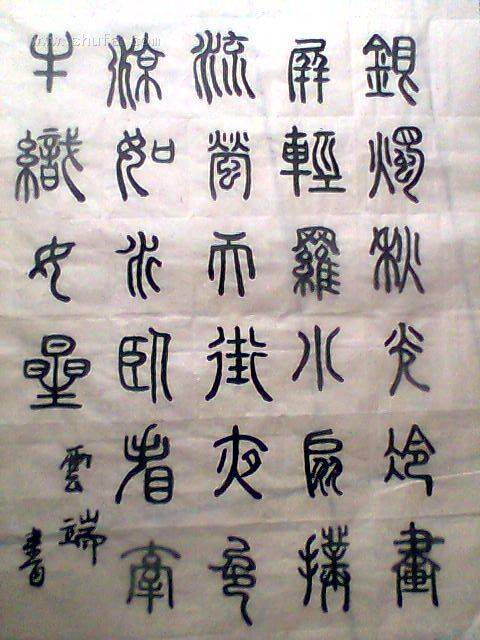 銀燭秋光冷畫
屏輕羅小扇撲
流螢天街夜色
涼如水臥看牽
牛織女星
雲端
書